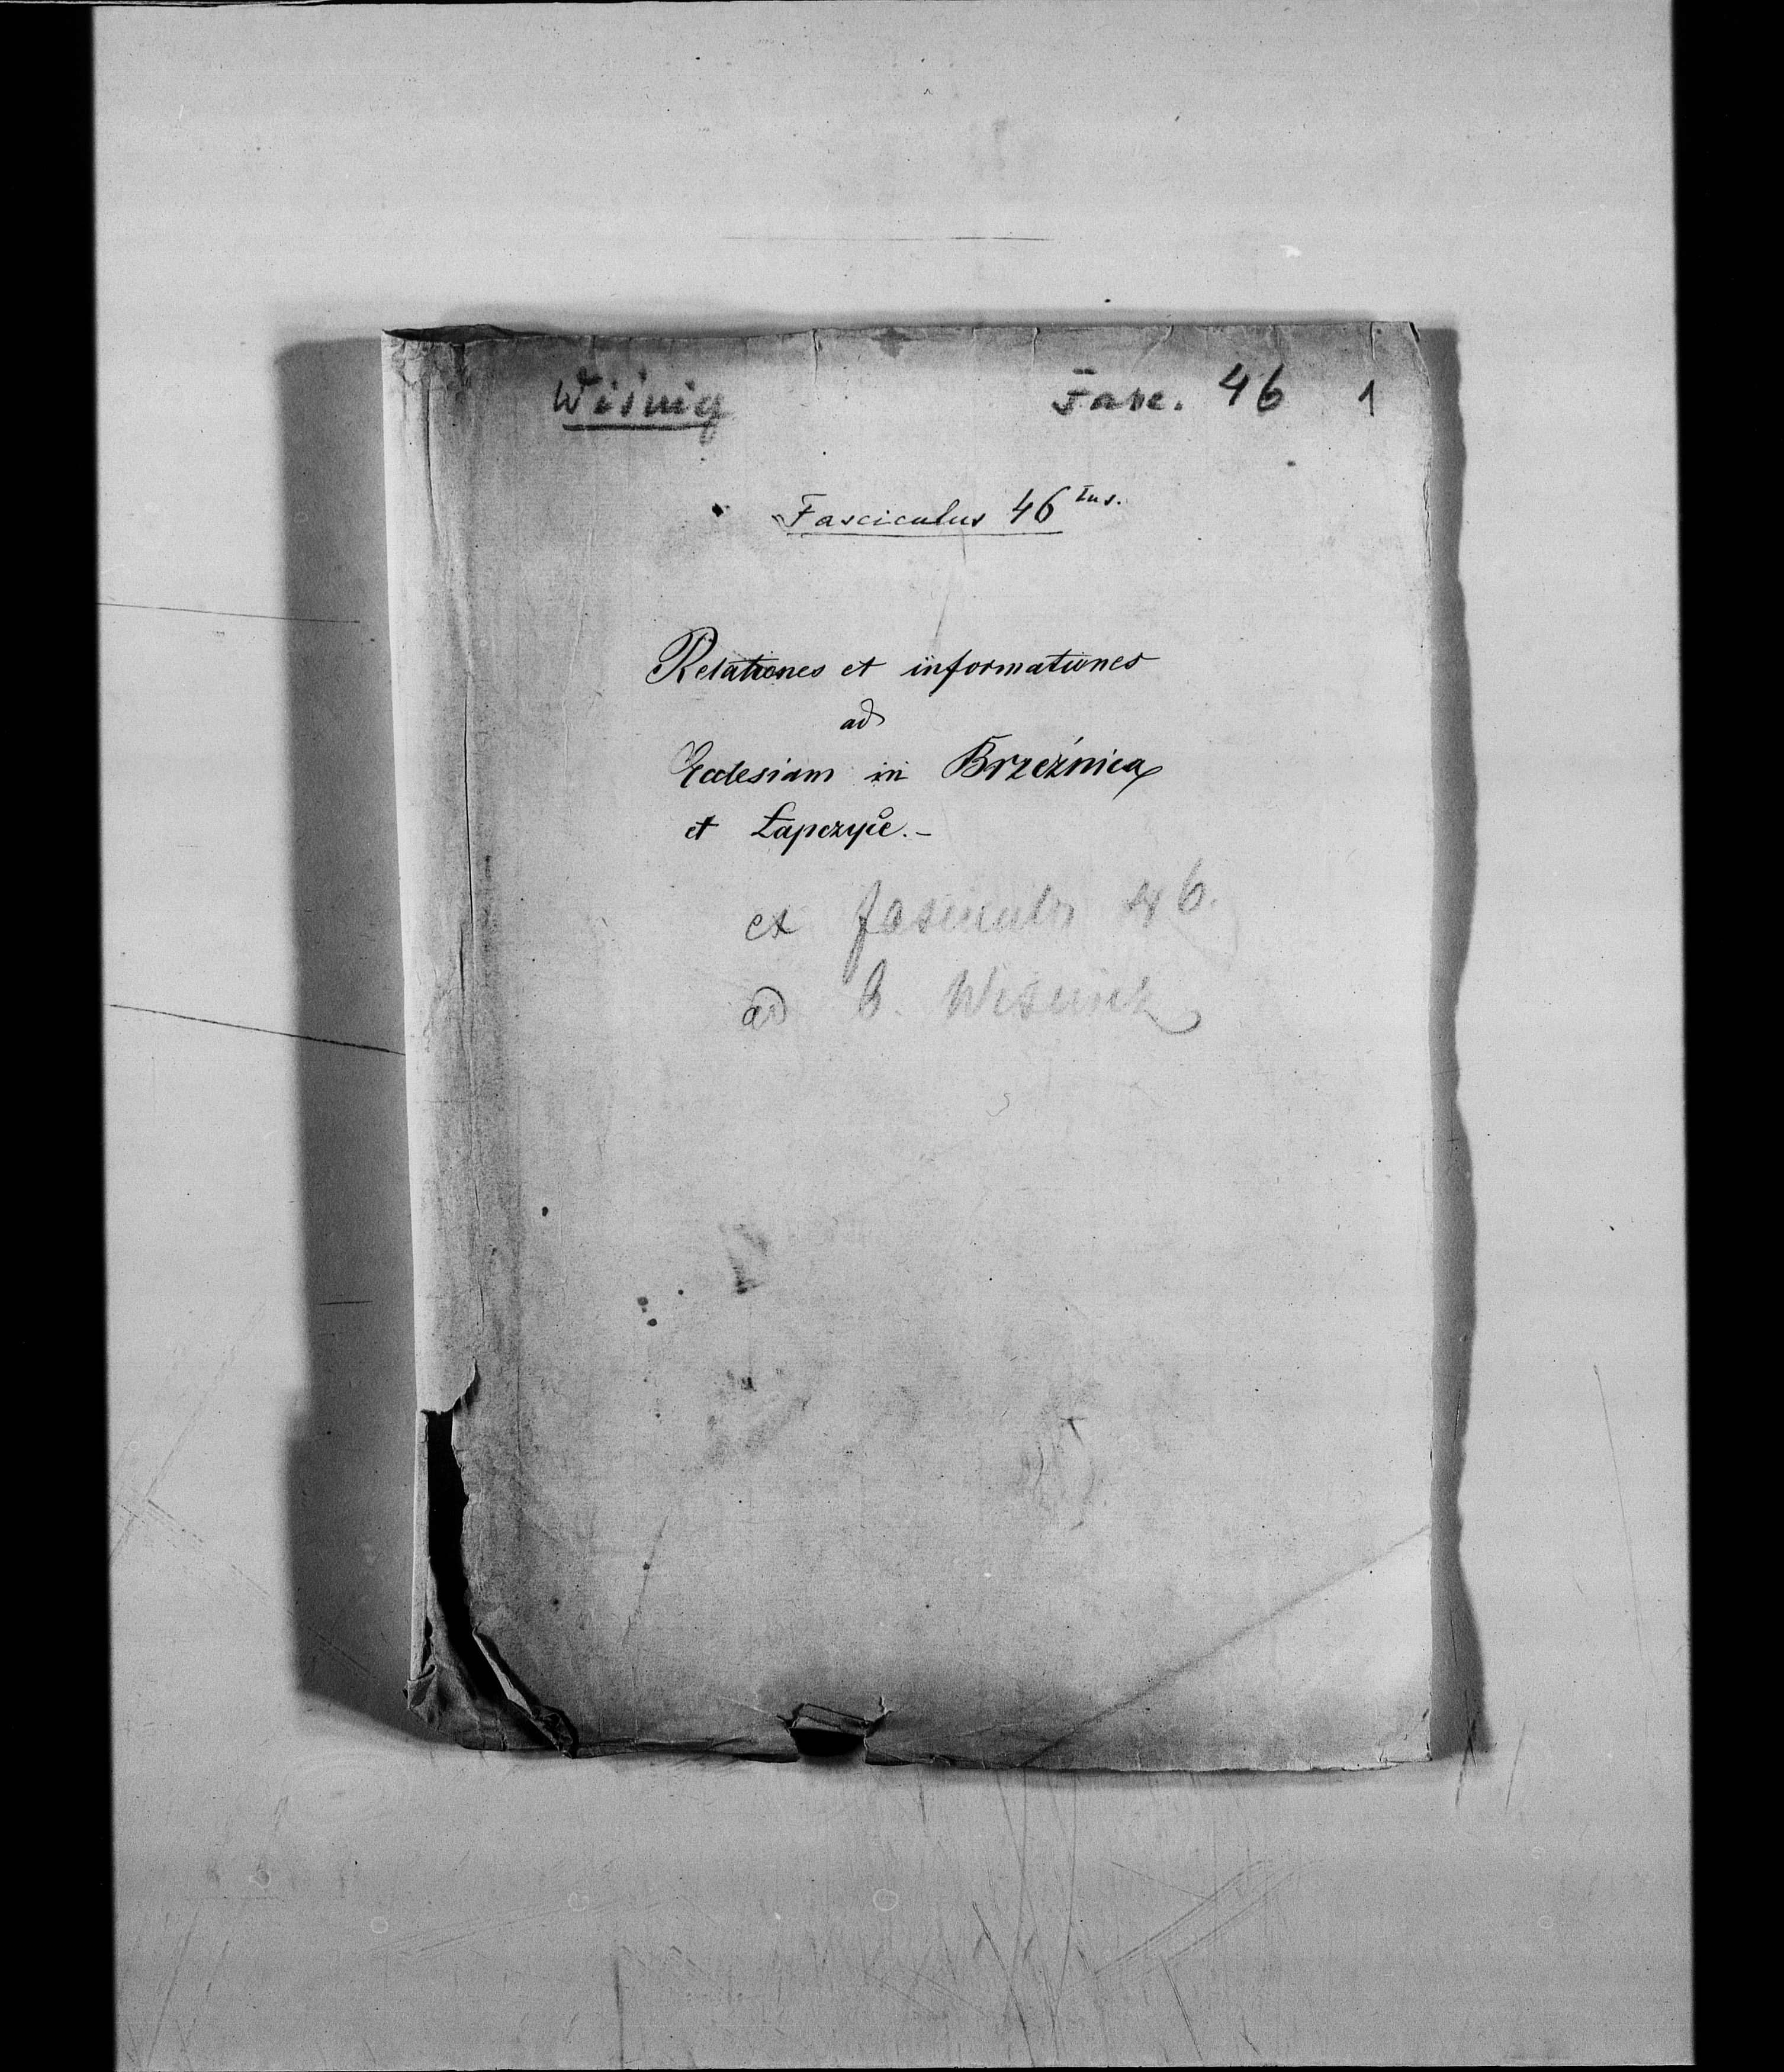 Wiśnicz Fasc. 46 1
Fasciculus 46 tus.
Relationes et informationes
ad
Ecclesiam in Brzeźnica
et Łapczyce.-
ex fasciculo 46.
ad B. Wiśnicz